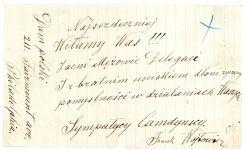 Najserdeczniej
Witamy Was !!!
Zacni Mężowie Delegaci
I z bratnim uściskiem dłoni życzymy
pomyślności w działaniach Waszych
Sympatycy Camdyńscy
Frank
Dom polski
211 Fairmount ave,
Philadelphia,